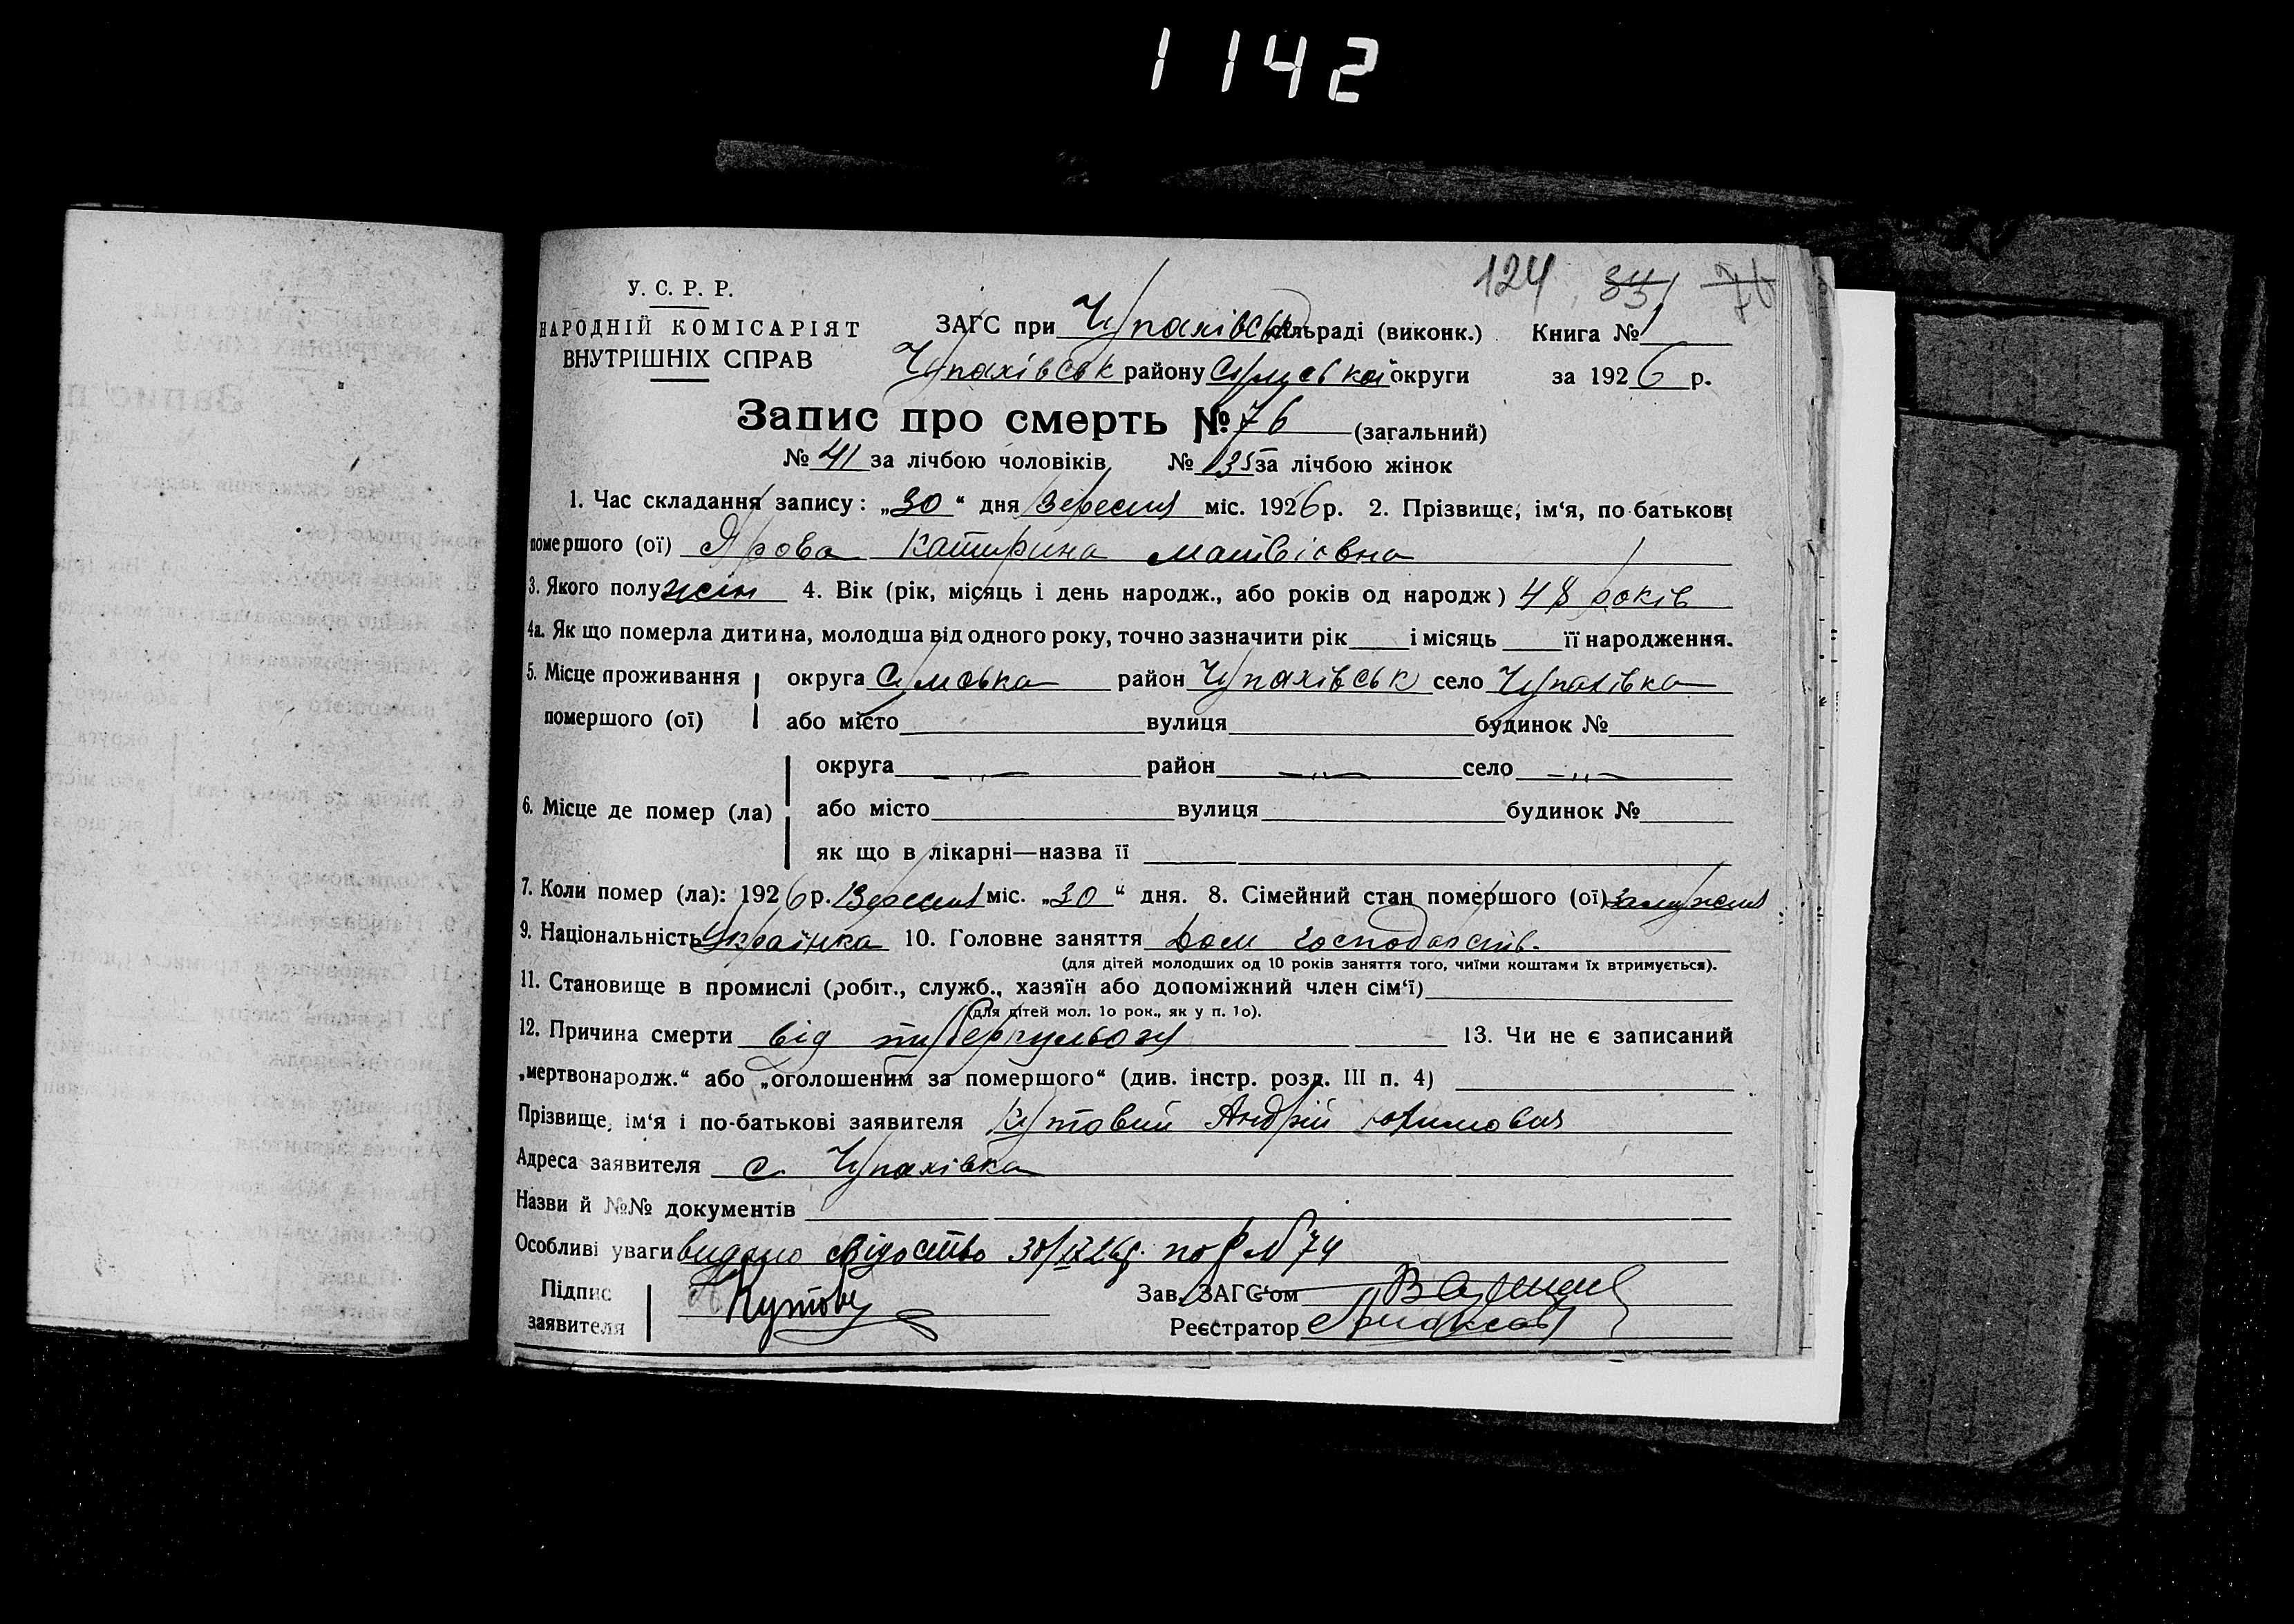 1142
124 83 76
У. С. Р. Р.
НАРОДНІЙ КОМІСАРІЯТ
ВНУТРІШНІХ СПРАВ
ЗАГС при Чупахівськ сільраді (виконк.) Книга № 1
Чупахівськ району Сумської округи за 1926 р.
Запис про смерть № 76 (загальний)
№ 41 за лічбою чоловіків, № 35 за лічбою жінок
1. Час складання запису: „30“ дня Вересня міс. 1926 р. 2. Прізвище, ім‘я, по-батькові
помершого (ої) Ярова Катирина Матвіївна
3. Якого полу жін 4. Вік (рік, місяць і день народж., або років од народж) 48 років
4а. Як що померла дитина, молодша від одного року, точно зазначити рік і місяць її народження.
5. Місце проживання округа Сумська район Чупахівськ село Чупахівка
помершого (ої) або місто вулиця будинок №
округа —„— район —„— село —„—
6. Місце де помер (ла) або місто вулиця будинок №
як що в лікарні—назва її
7. Коли помер (ла): 1926 р. Вересня міс. „30“ дня. 8. Сімейний стан помершого (ої) замужня
9. Національність Українка 10. Головне заняття Дом господарств.
(для дітей молодших од 10 років заняття того, чиїми коштами їх втримується).
11. Становище в промислі (робіт., служб., хазяїн або допоміжний член сім‘ї)
(для дітей мол. 1о рок., як у п. 1о).
12. Причина смерти від туберкульозу 13. Чи не є записаний
„мертвонародж.“ або „оголошеним за помершого“ (див. інстр. розд. III п. 4)
Прізвище, ім‘я і по-батькові заявителя Кутовий Андрій Юхимович
Адреса заявителя с. Чупахівка
Назви й №№ документів
Особливі уваги видано свідоство 30/IX 26 р. по ф N 74
Підпис Зав. ЗАГС‘ом
заявителя Кутовий Реєстратор